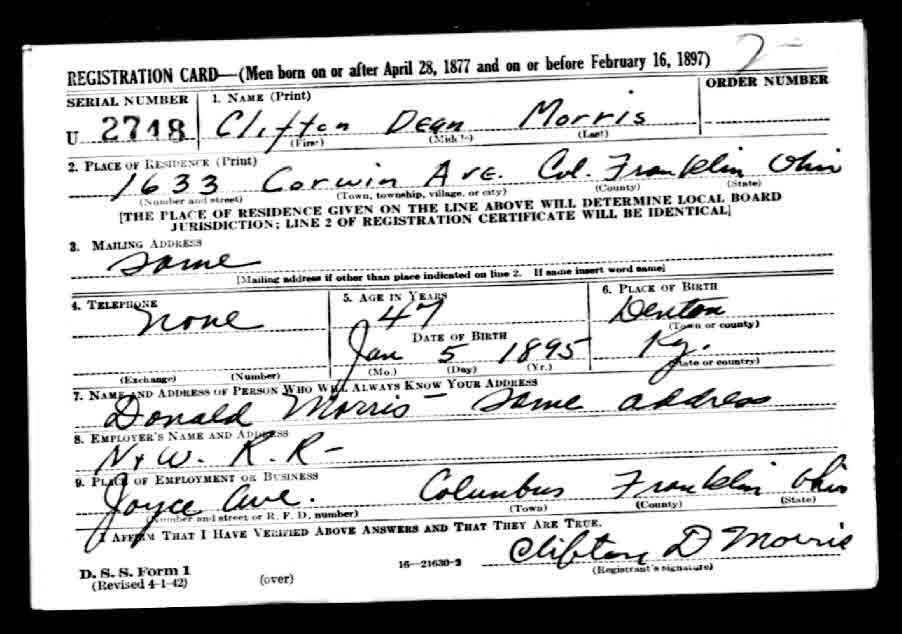 REGISTRATION CARD—(Men born on or after April 28, 1877 and on or before February 16, 1897)
SERIAL NUMBER 1. NAME (Print) ORDER NUMBER
U 2718 Clifton Dean Morris
(First) (Middle) (Last)
2. PLACE OF RESIDENCE (Print)
1633 Corwin Ave. Col. Franklin Ohio
(Number and street) (Town, township, village, or city) (County) (State)
[THE PLACE OF RESIDENCE GIVEN ON THE LINE ABOVE WILL DETERMINE LOCAL BOARD
JURISDICTION; LINE 2 OF REGISTRATION CERTIFICATE WILL BE IDENTICAL]
3. MAILING ADDRESS
Same
[Mailing address if other than place indicated on line 2. If same insert word same]
4. TELEPHONE 5. AGE IN YEARS 6. PLACE OF BIRTH
None 47 Denton
DATE OF BIRTH (Town or county)
Jan 5 1895 Ky.
(Exchange) (Number) (Mo.) (Day) (Yr.) (State or country)
7. NAME AND ADDRESS OF PERSON WHO WILL ALWAYS KNOW YOUR ADDRESS
Donald Morris – Same address
8. EMPLOYER'S NAME AND ADDRESS
N + W. R. R –
9. PLACE OF EMPLOYMENT OR BUSINESS
Joyce Ave. Columbus Franklin Ohio
(Number and street or R. F. D. number) (Town) (County) (State)
I AFFIRM THAT I HAVE VERIFIED ABOVE ANSWERS AND THAT THEY ARE TRUE.
Clifton D Morris
D. S. S. Form 1 16—21630-2 (Registrant's signature)
(Revised 4-1-42) (over)